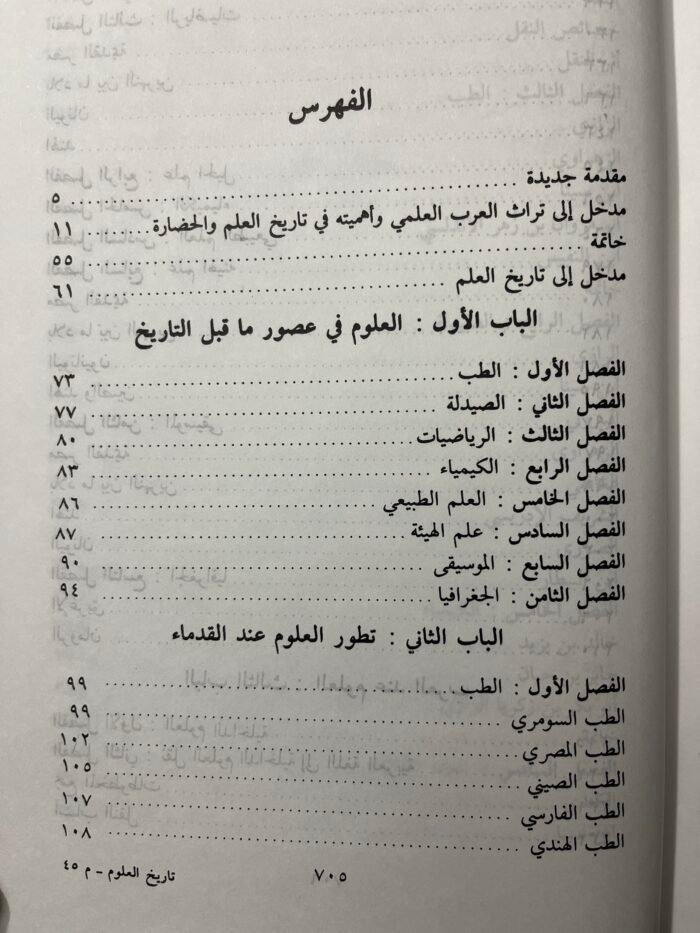 الفهرس
مقدمة جديدة ..... ٥
مدخل إلى تراث العرب العلمي وأهميته في تاريخ العلم والحضارة ..... ١١
خاتمة ..... ٥٥
مدخل إلى تاريخ العلم ..... ٦١
الباب الأول : العلوم في عصور ما قبل التاريخ
الفصل الأول : الطب ..... ٧٣
الفصل الثاني : الصيدلة ..... ٧٧
الفصل الثالث : الرياضيات ..... ٨٠
الفصل الرابع : الكيمياء ..... ٨٣
الفصل الخامس : العلم الطبيعي ..... ٨٦
الفصل السادس : علم الهيئة ..... ٨٧
الفصل السابع : الموسيقى ..... ٩٠
الفصل الثامن : الجغرافيا ..... ٩٤
الباب الثاني : تطور العلوم عند القدماء
الفصل الأول : الطب ..... ٩٩
الطب السومري ..... ٩٩
الطب المصري ..... ١٠٢
الطب الصيني ..... ١٠٥
الطب الفارسي ..... ١٠٧
الطب الهندي ..... ١٠٨
٧٠٥
تاريخ العلوم - م ٤٥